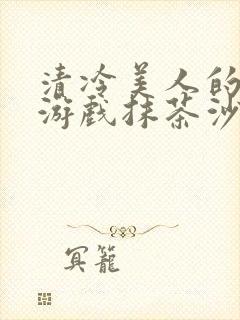 清冷美人的
游戏抹茶沙
冥籠